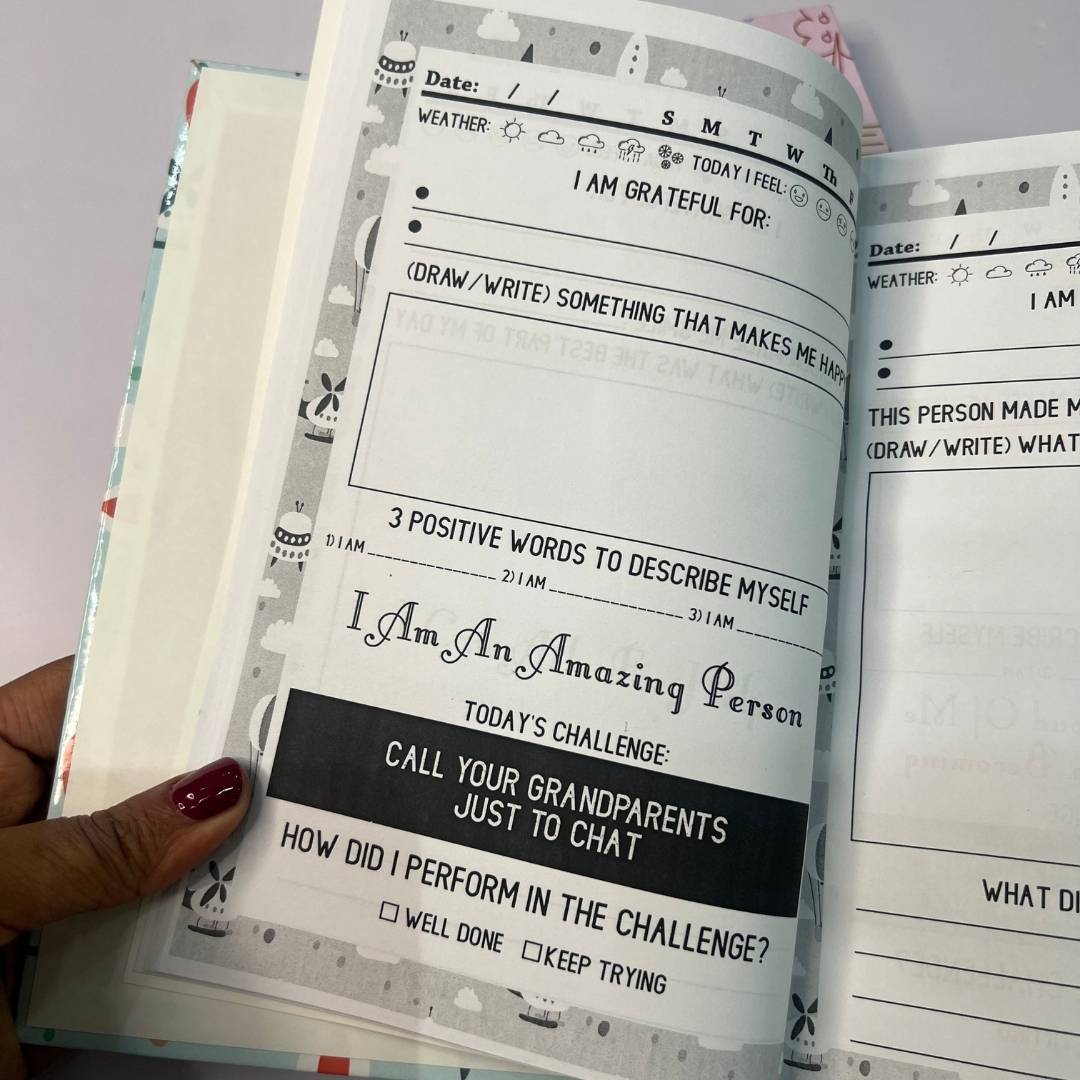 Date: / / S M T W Th F
WEATHER: TODAY I FEEL:
I AM GRATEFUL FOR:
(DRAW/WRITE) SOMETHING THAT MAKES ME HAPPY
3 POSITIVE WORDS TO DESCRIBE MYSELF
1) I AM ____________ 2) I AM ____________ 3) I AM ________
I Am An Amazing Person
TODAY'S CHALLENGE:
CALL YOUR GRANDPARENTS
JUST TO CHAT
HOW DID I PERFORM IN THE CHALLENGE?
☐ WELL DONE ☐ KEEP TRYING
1
Date: / /
WEATHER:
I AM
THIS PERSON MADE M
(DRAW/WRITE) WHAT
WHAT DI